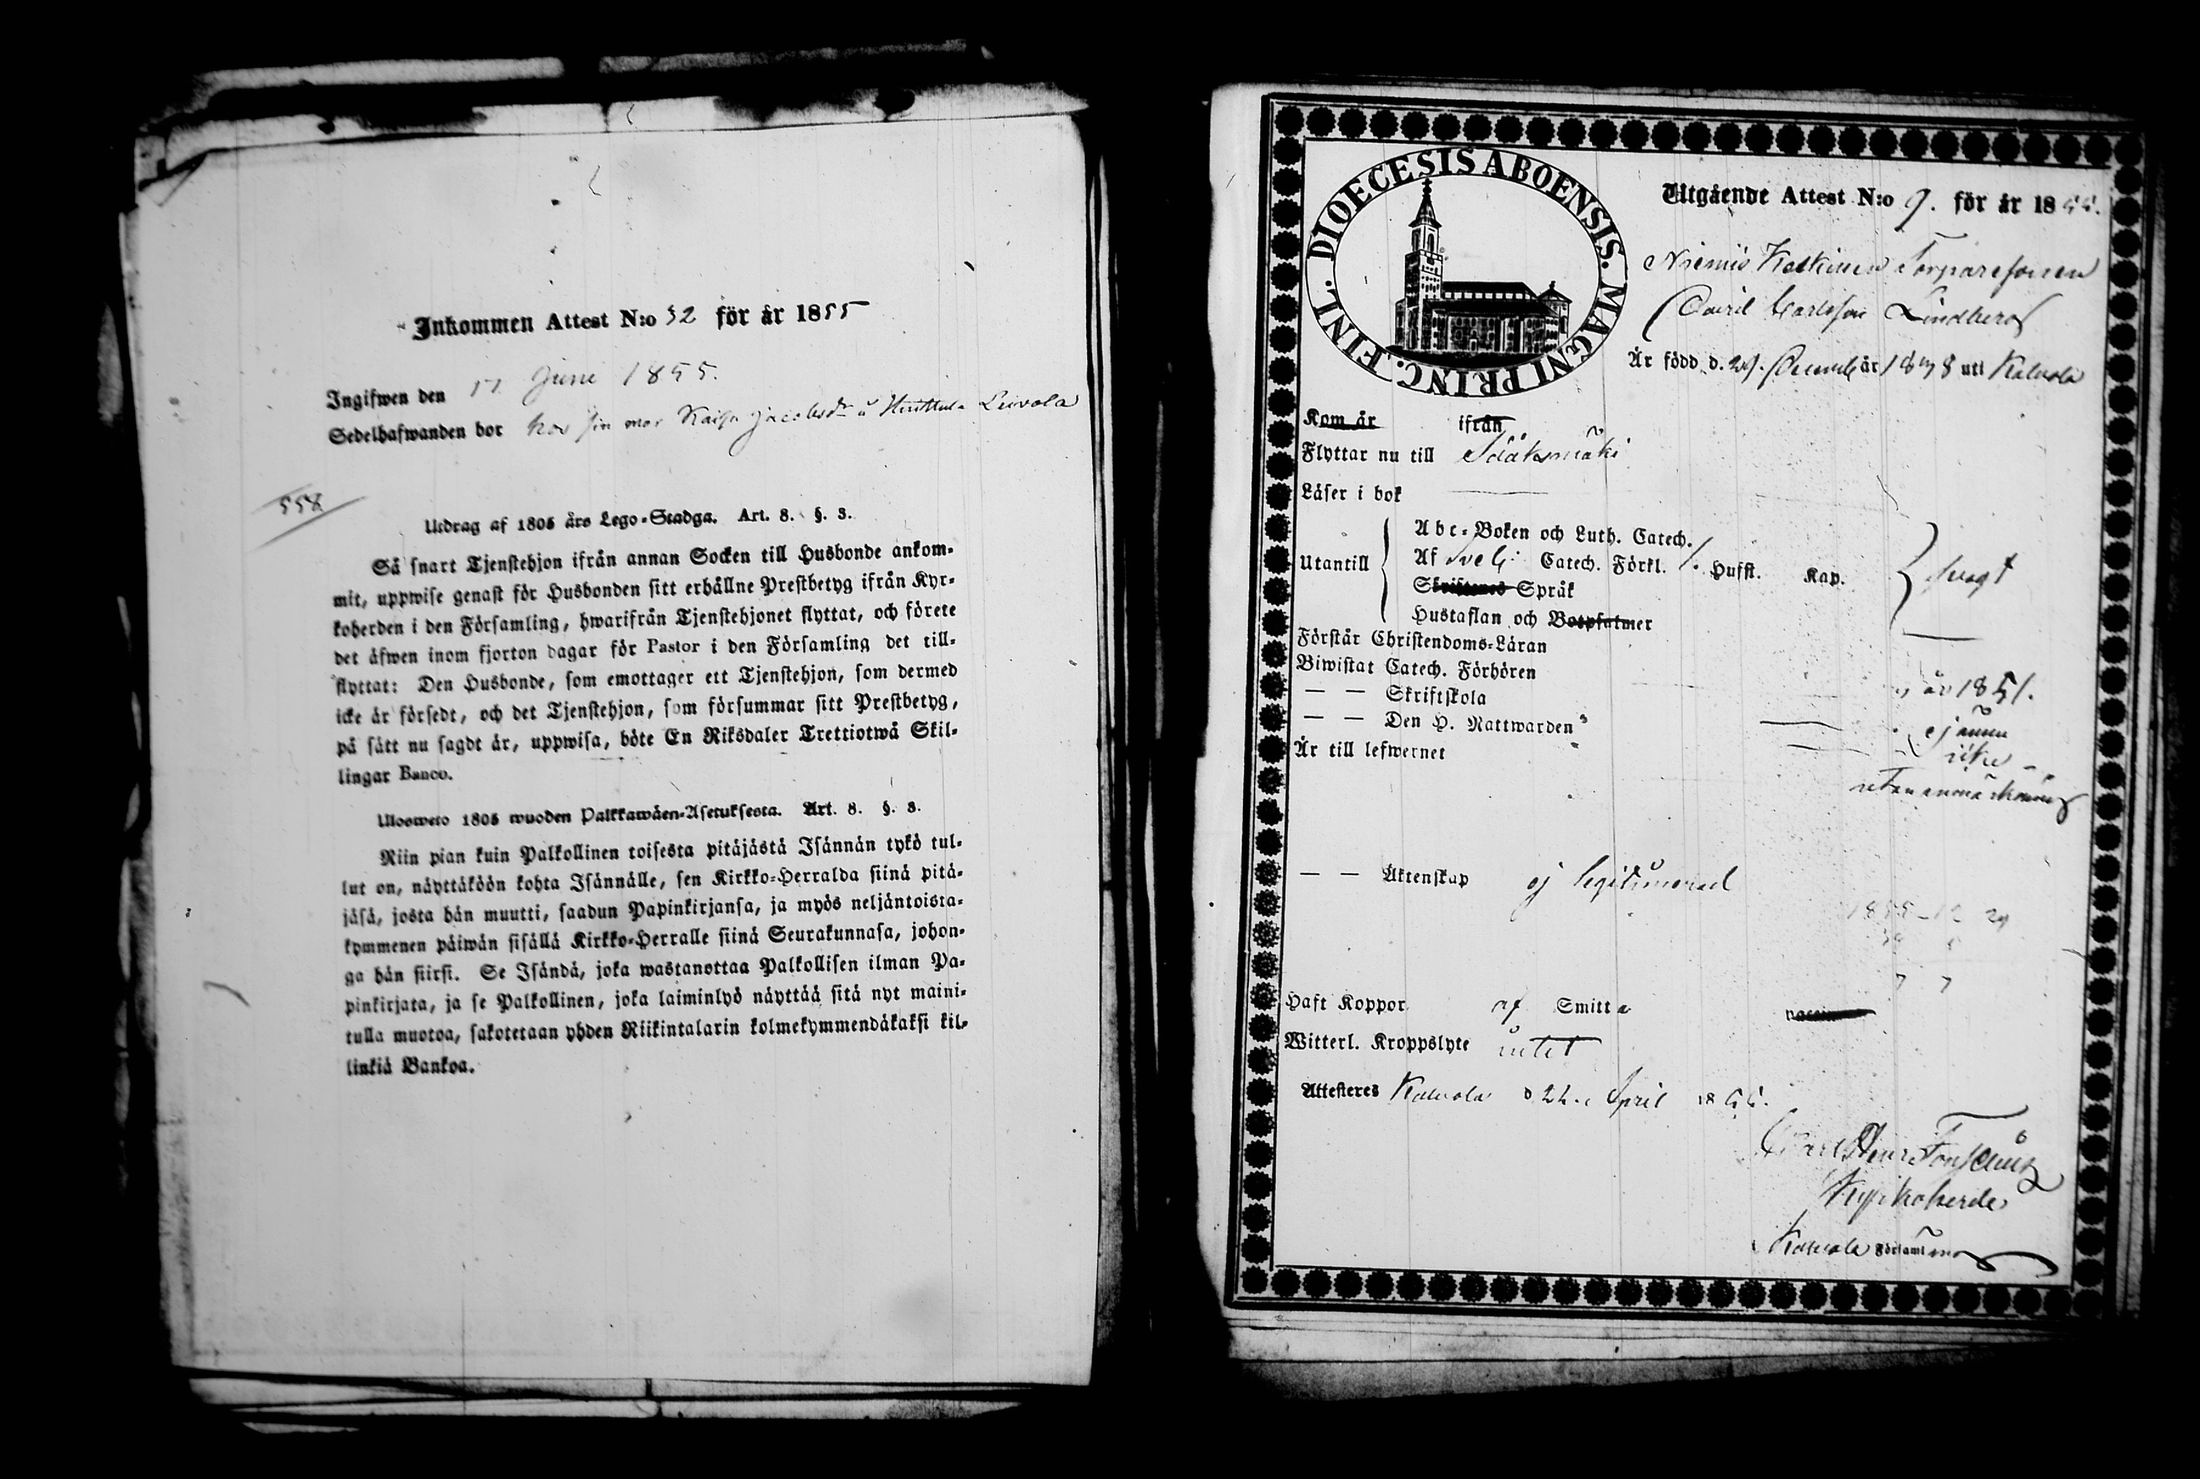 Inkommen Attest N:o 32 för år 1855
Ingifwen den 17 Juni 1855.
Sedelhafwanden bor hos sin mor Kaisa Jacobsdr å Huittula Leivola
558
Utdrag af 1805 års Lego-Stadga. Art. 8. §. 3.
Så snart Tjenstehjon ifrån annan Socken till Husbonde ankom-
mit, uppwise genast för Husbonden sitt erhållne Prestbetyg ifrån Kyr-
koherden i den Församling, hwarifrån Tjenstehjonet flyttat, och förete
det äfwen inom fjorton dagar för Pastor i den Församling det till-
flyttat: Den Husbonde, som emottager ett Tjenstehjon, som dermed
icke är försedt, och det Tjenstehjon, som försummar sitt Prestbetyg,
på sätt nu sagdt är, uppwisa, böte En Riksdaler Trettiotwå Skil-
lingar Banco.
Ulosweto 1805 wuoden Palkkawäen-Asetuksesta. Art. 8. §. 3.
Niin pian kuin Palkollinen toisesta pitäjästä Isännän tykö tul-
lut on, näyttäköön kohta Isännälle, sen Kirkko-Herralda siinä pitä-
jäsä, josta hän muutti, saadun Papinkirjansa, ja myös neljäntoista-
kymmenen päiwän sisällä Kirkko-Herralle siinä Seurakunnasa, johon-
ga hän siirsi. Se Isändä, joka wastanottaa Palkollisen ilman Pa-
pinkirjata, ja se Palkollinen, joka laiminlyö näyttää sitä nyt maini-
tulla muotoa, sakotetaan yhden Riikintalarin kolmekymmendäkaksi kil-
linkiä Bankoa.
DIOECESIS ABOENSIS. MAGNI PRINC. FINL.
Utgående Attest N:o 9. för år 1855.
Niemis Torparesonen
David Carlsson Lindberg
Är född d. 29. Decemb år 1838 uti Kalvola
Kom år ifrån
Flyttar nu till Sääksmäki
Läser i bok
Utantill
Abc-Boken och Luth. Catech.
Af Sveb. Catech. Förkl. Husst. Kap. svagt
Skriftenes Språk
Hustaflan och Botpsalmer
Förstår Christendoms-Läran
Biwistat Catech. Förhören år 1851.
— — Skriftskola ej ännu
— — Den H. Nattwarden icke
Är till lefwernet utan anmärkning
— — Äktenskap ej legitimerad
1855-12 29
7 7
Haft Koppor af Smitta
Witterl. Kroppslyte intet
Attesteres Kalvola d 22. April 1855.
Carl Henr.
Kyrkoherde
Kalvola Församling